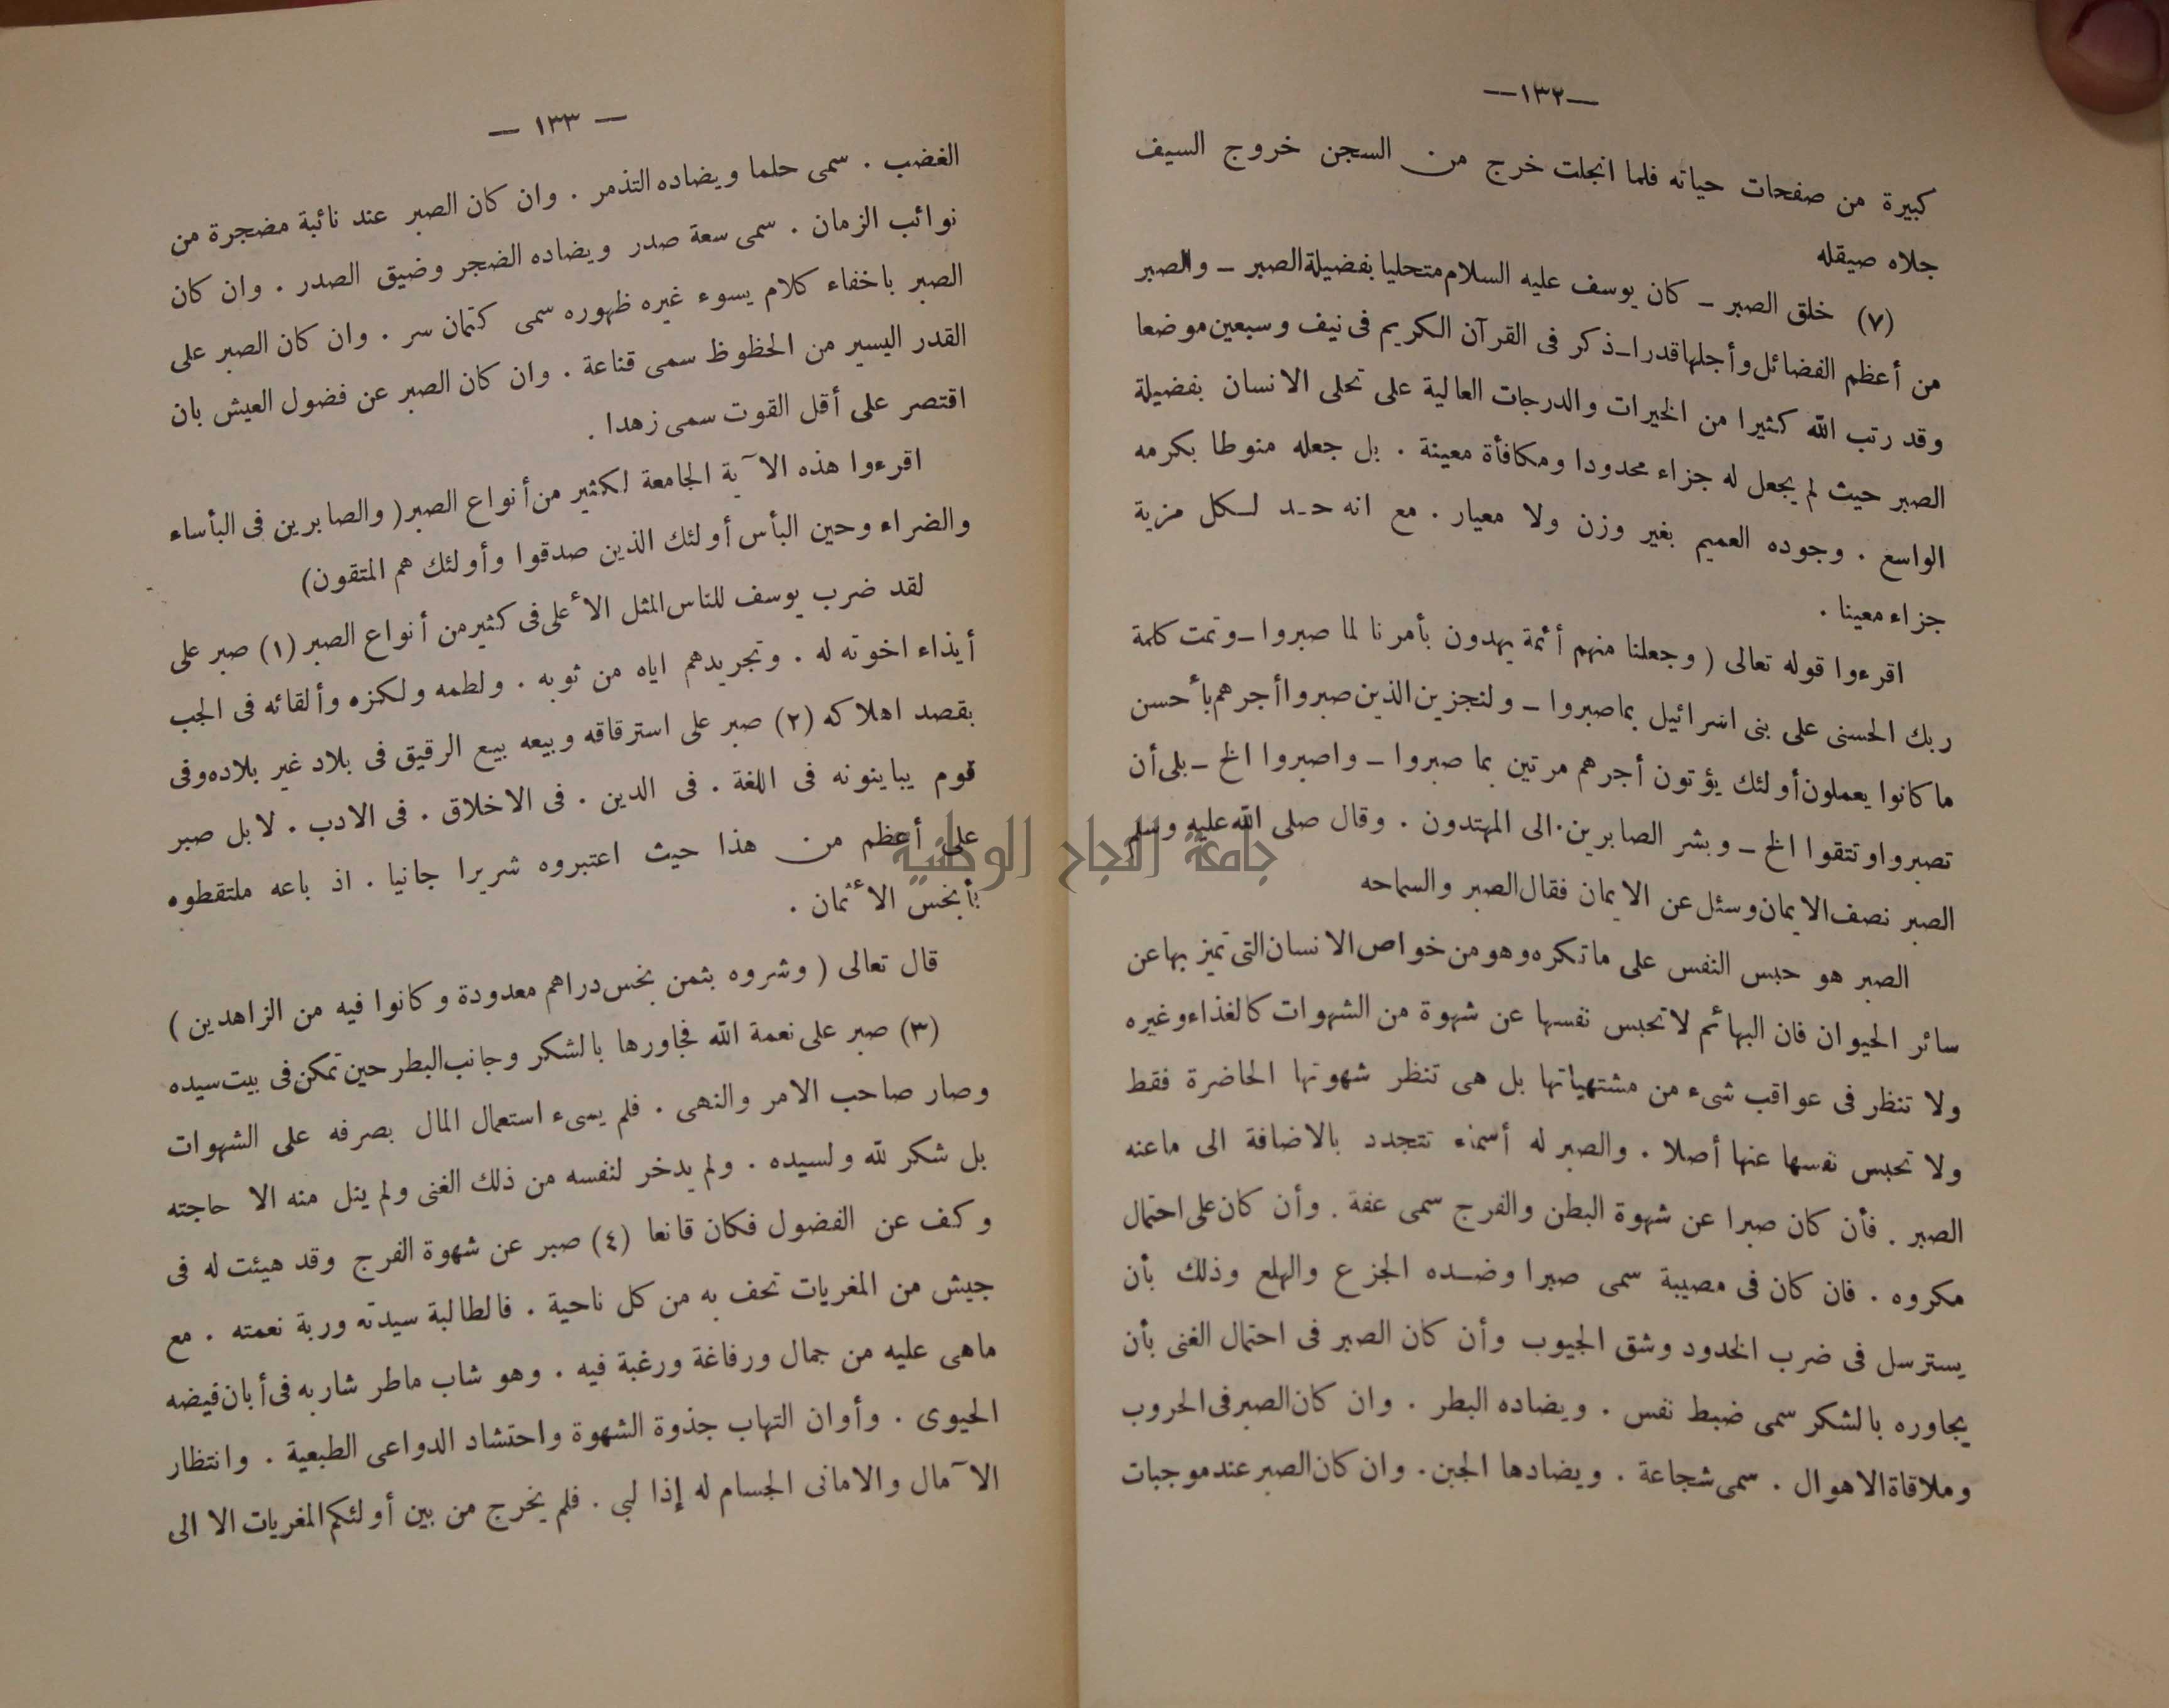 —١٣٢—
كبيرة من صفحات حياته فلما انجلت خرج من السجن خروج السيف
جلاه صيقله
(٧) خلق الصبر – كان يوسف عليه السلام متحليا بفضيلة الصبر – والصبر
من أعظم الفضائل وأجلها قدرا – ذكر فى القرآن الكريم فى نيف وسبعين موضعا
وقد رتب الله كثيرا من الخيرات والدرجات العالية على تحلى الانسان بفضيلة
الصبر حيث لم يجعل له جزاء محدودا ومكافأة معينة . بل جعله منوطا بكرمه
الواسع . وجوده العميم بغير وزن ولا معيار . مع انه حد لكل مزية
جزاء معينا .
اقرءوا قوله تعالى ( وجعلنا منهم أئمة يهدون بأمرنا لما صبروا – وتمت كلمة
ربك الحسنى على بنى اسرائيل بما صبروا – ولنجزين الذين صبروا أجرهم بأحسن
ما كانوا يعملون أولئك يؤتون أجرهم مرتين بما صبروا – واصبروا الخ – بلى أن
تصبروا وتتقوا الخ – وبشر الصابرين . الى المهتدون . وقال صلى الله عليه وسلم
الصبر نصف الايمان وسئل عن الايمان فقال الصبر والسماحه
الصبر هو حبس النفس على ما تكره وهو من خواص الانسان التى تميز بها عن
سائر الحيوان فان البهائم لا تحبس نفسها عن شهوة من الشهوات كالغذاء وغيره
ولا تنظر فى عواقب شىء من مشتهياتها بل هى تنظر شهوتها الحاضرة فقط
ولا تحبس نفسها عنها أصلا . والصبر له أسماء تتجدد بالاضافة الى ما عنه
الصبر . فأن كان صبرا عن شهوة البطن والفرج سمى عفة . وأن كان على احتمال
مكروه . فان كان فى مصيبة سمى صبرا وضده الجزع والهلع وذلك بأن
يسترسل فى ضرب الخدود وشق الجيوب وأن كان الصبر فى احتمال الغنى بأن
يجاوره بالشكر سمى ضبط نفس . ويضاده البطر . وان كان الصبر فى الحروب
وملاقاة الاهوال . سمى شجاعة . ويضادها الجبن . وان كان الصبر عند موجبات
— ١٣٣ —
الغضب . سمى حلما ويضاده التذمر . وان كان الصبر عند نائبة مضجرة من
نوائب الزمان . سمى سعة صدر ويضاده الضجر وضيق الصدر . وان كان
الصبر باخفاء كلام يسوء غيره ظهوره سمى كتمان سر . وان كان الصبر على
القدر اليسير من الحظوظ سمى قناعة . وان كان الصبر عن فضول العيش بان
اقتصر على أقل القوت سمى زهدا .
اقرءوا هذه الآية الجامعة لكثير من أنواع الصبر ( والصابرين فى البأساء
والضراء وحين البأس أولئك الذين صدقوا وأولئك هم المتقون)
لقد ضرب يوسف للناس المثل الأعلى فى كثير من أنواع الصبر (١) صبر على
أيذاء اخوته له . وتجريدهم اياه من ثوبه . ولطمه ولكزه وألقائه فى الجب
بقصد اهلاكه (٢) صبر على استرقاقه وبيعه بيع الرقيق فى بلاد غير بلاده وفى
قوم يباينونه فى اللغة . فى الدين . فى الاخلاق . فى الادب . لا بل صبر
على أعظم من هذا حيث اعتبروه شريرا جانيا . اذ باعه ملتقطوه
بأبخس الأثمان .
قال تعالى ( وشروه بثمن بخس دراهم معدودة وكانوا فيه من الزاهدين )
(٣) صبر على نعمة الله فجاورها بالشكر وجانب البطر حين تمكن فى بيت سيده
وصار صاحب الامر والنهى . فلم يسىء استعمال المال بصرفه على الشهوات
بل شكر لله ولسيده . ولم يدخر لنفسه من ذلك الغنى ولم ينل منه الا حاجته
وكف عن الفضول فكان قانعا (٤) صبر عن شهوة الفرج وقد هيئت له فى
جيش من المغريات تحف به من كل ناحية . فالطالبة سيدته وربة نعمته . مع
ماهى عليه من جمال ورفاغة ورغبة فيه . وهو شاب ماطر شاربه فى أبان فيضه
الحيوى . وأوان التهاب جذوة الشهوة واحتشاد الدواعى الطبعية . وانتظار
الآمال والامانى الجسام له إذا لبى . فلم يخرج من بين أولئكم المغريات الا الى
جامعة النجاح الوطنية